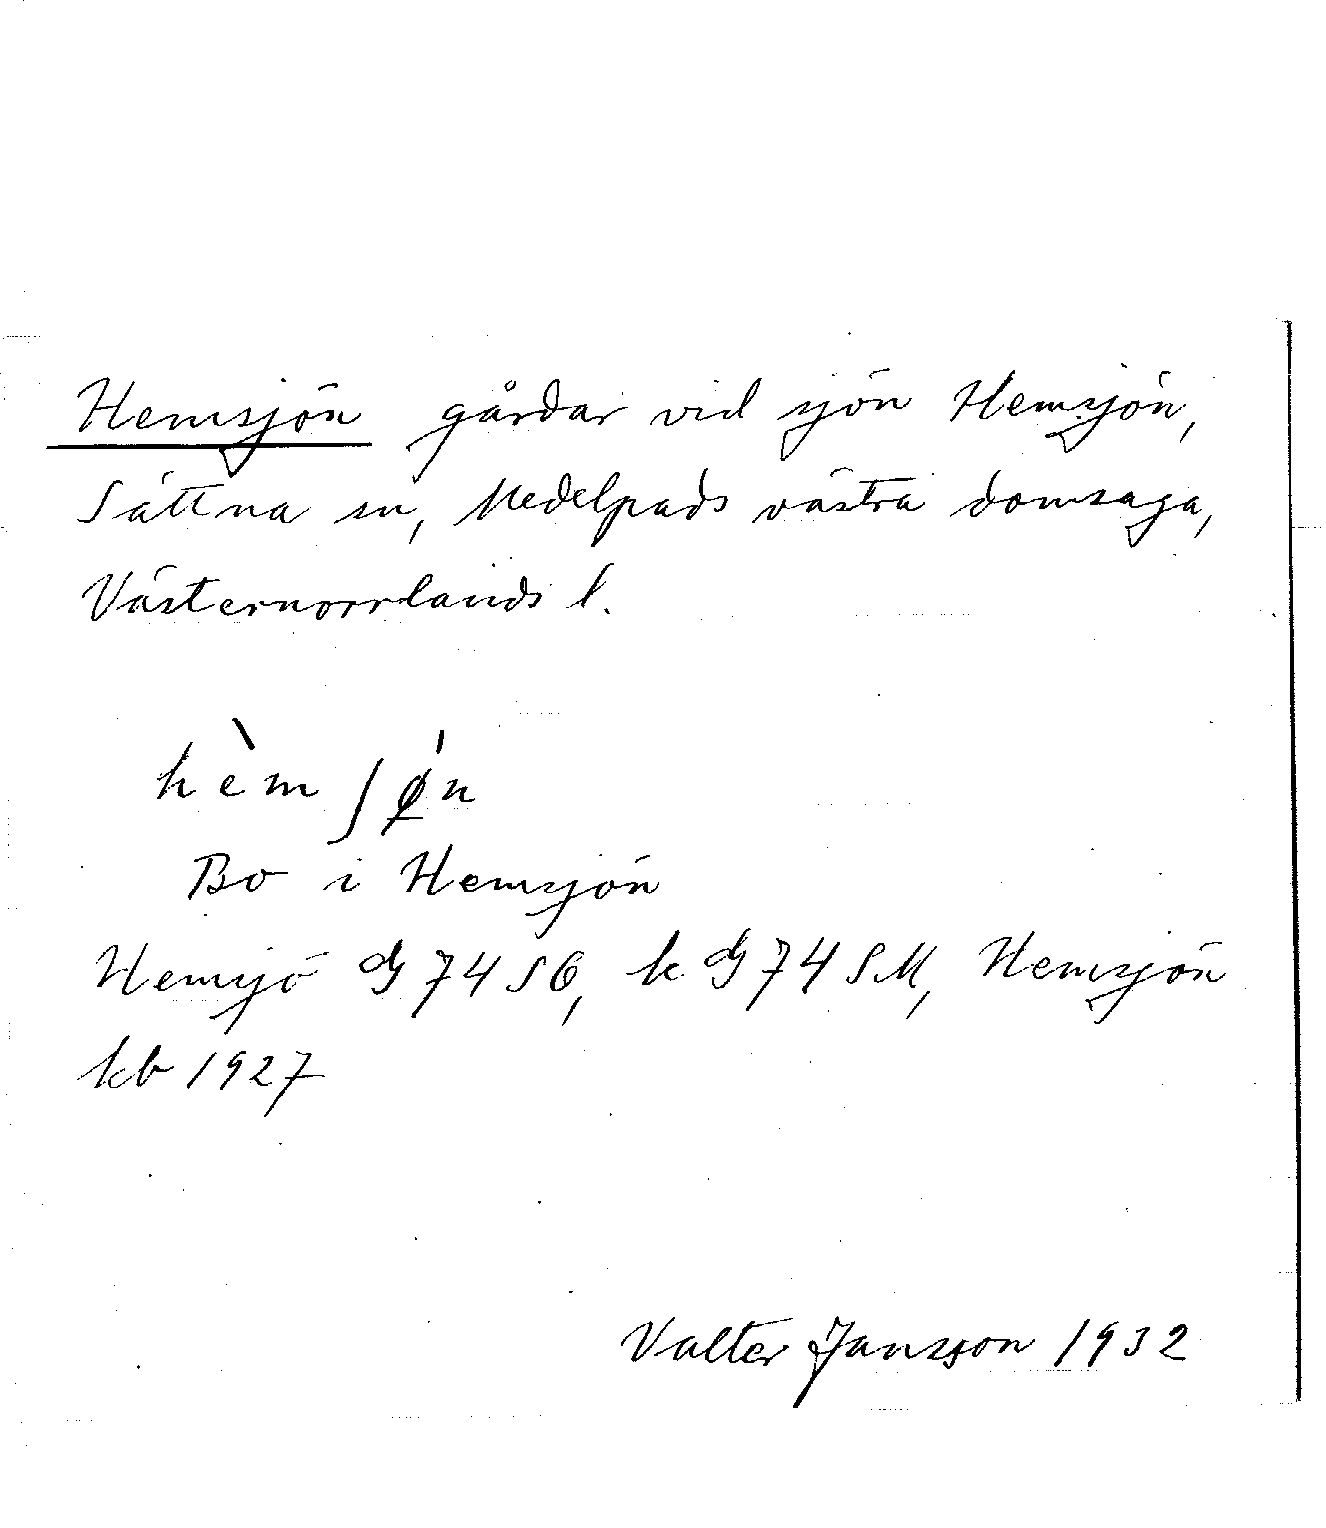 Hemsjön gårdar vid sjön Hemsjön,
Sättna sn, Medelpads västra domsaga,
Västernorrlands l.
hèmʃø̀n
Bo i Hemsjön
Hemsjö G 74 SÖ, k G 74 SM, Hemsjön
kb 1927
Valter Jansson 1932